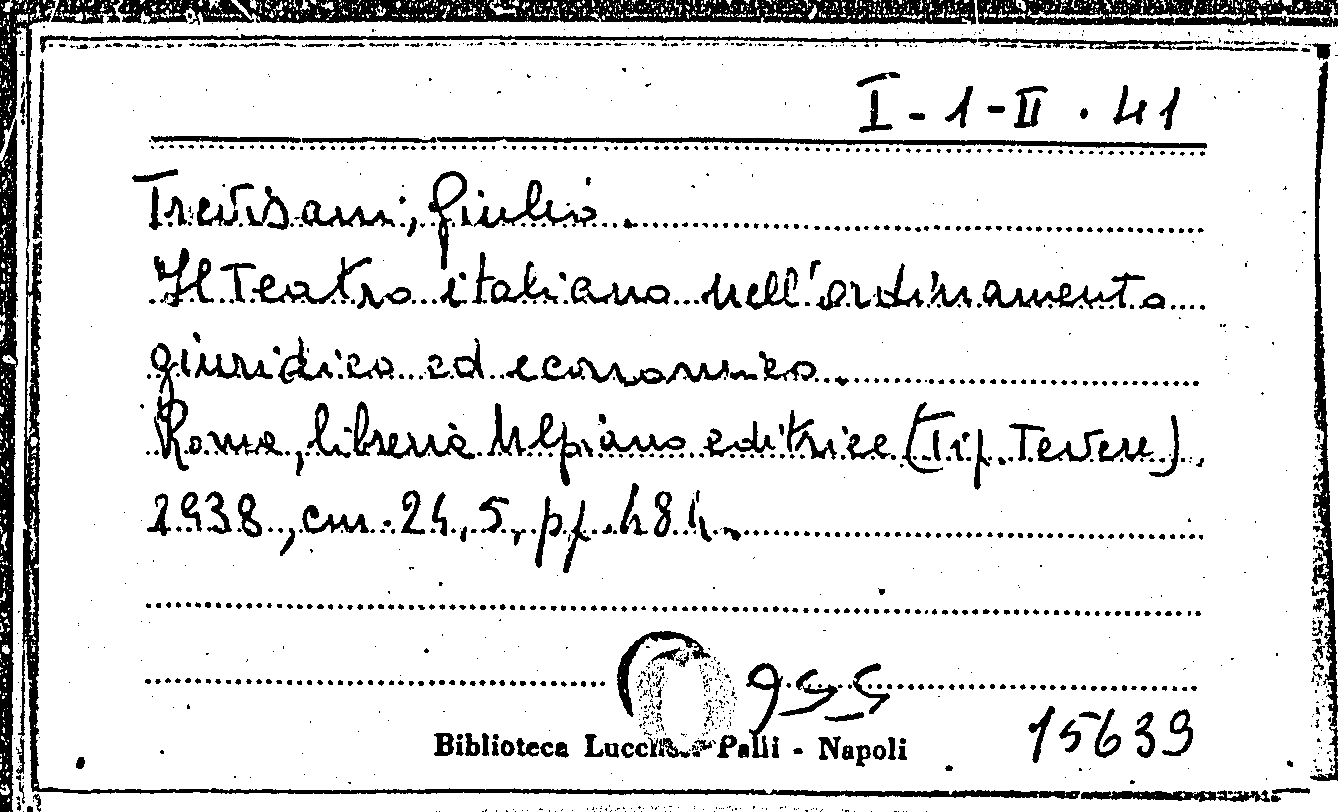 I-1-II.41
Trevisani, Giulio.
Il Teatro italiano nell'ordinamento
giuridico ed economico.
Roma, libreria Ulpiano editrice (Tip. Tevere),
1938, cm. 24,5, pp. 484.
955
Biblioteca Lucchesi Palli - Napoli
15639